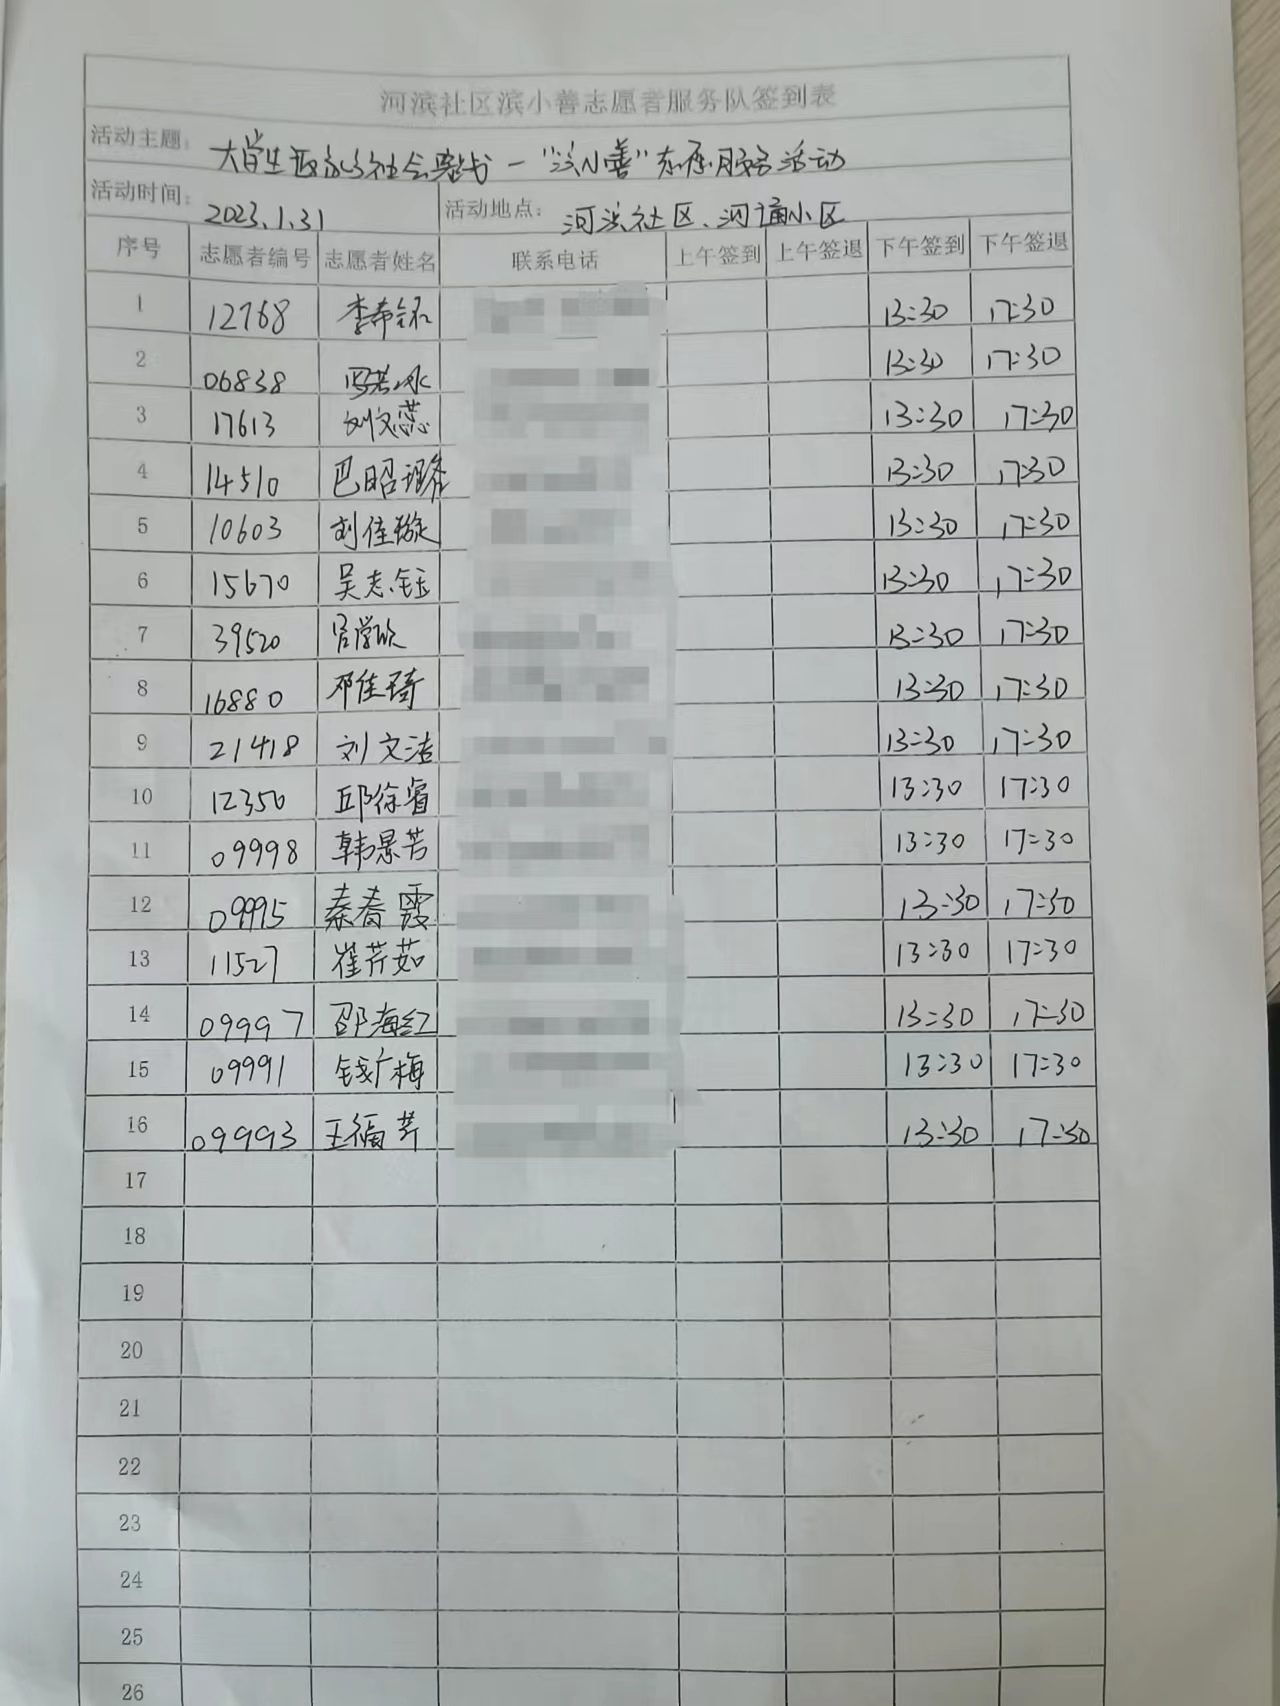 河滨社区滨小善志愿者服务队签到表
活动主题: 大学生 社会实践一“滨小善”志愿服务活动
活动时间: 2023.1.31 活动地点: 河滨社区、河浦小区
序号 志愿者编号 志愿者姓名 联系电话 上午签到 上午签退 下午签到 下午签退
1 12768 李希铭 13:30 17:30
2 06838 冯若冰 13:30 17:30
3 17613 刘文蕊 13:30 17:30
4 14510 巴昭 13:30 17:30
5 10603 刘佳璇 13:30 17:30
6 15670 吴志钰 13:30 17:30
7 39520 官学欣 13:30 17:30
8 16880 邓佳琦 13:30 17:30
9 21418 刘文洁 13:30 17:30
10 12350 邱徐睿 13:30 17:30
11 09998 韩景芳 13:30 17:30
12 09995 秦春霞 13:30 17:30
13 11527 崔芹茹 13:30 17:30
14 09997 邵海红 13:30 17:30
15 09991 钱广梅 13:30 17:30
16 09993 王福芹 13:30 17:30
17
18
19
20
21
22
23
24
25
26